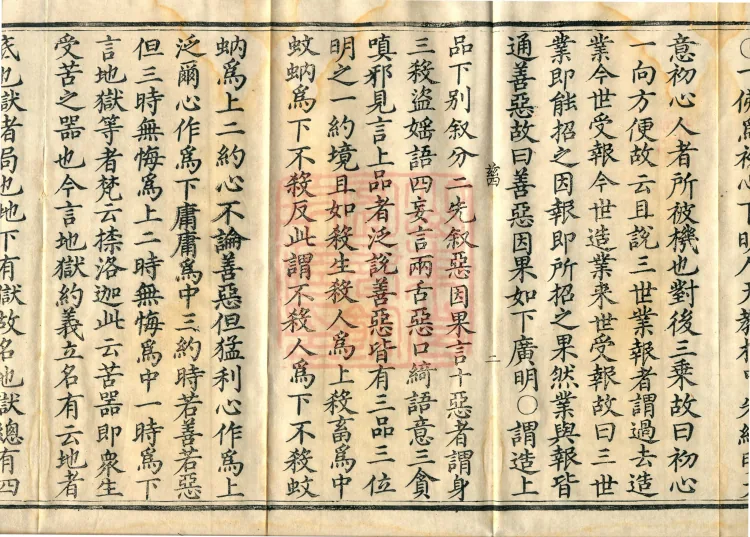 意初心人者所被機也對後三乗故曰初心
一向方便故云且説三世業報者謂過去造
業今世受報今世造業来世受報故曰三世
業即能招之因報即所招之果然業與報皆
通善惡故曰善惡因果如下廣明〇謂造上
二
品下别叙分二先叙惡因果言十惡者謂身
三殺盗婬語四妄言兩舌惡口綺語意三貪
嗔邪見言上品者泛説善惡皆有三品三位
明之一約境且如殺生殺人爲上殺畜爲中
蚊蚋爲下不殺反此謂不殺人爲下不殺蚊
蚋爲上二約心不論善惡但猛利心作爲上
泛爾心作爲下庸庸爲中三約時若善若惡
但三時無悔爲上二時無悔爲中一時爲下
言地獄等者梵云捺洛迦此云苦器即衆生
受苦之器也今言地獄約義立名有云地者
底也獄者局也地下有獄故名也獄總有四